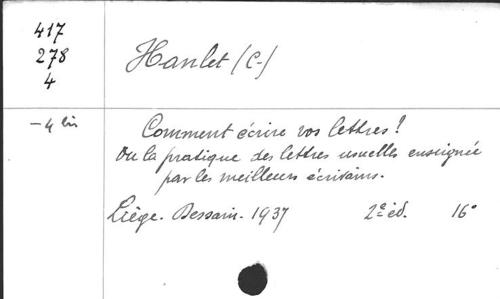 417
278
4
Hanlet (C-)
- 4 bis
Comment écrire vos lettres!
Ou la pratique des lettres usuelles enseignée
par les meilleurs écrivains.
Liège. Dessain. 1937 2e éd. 16°